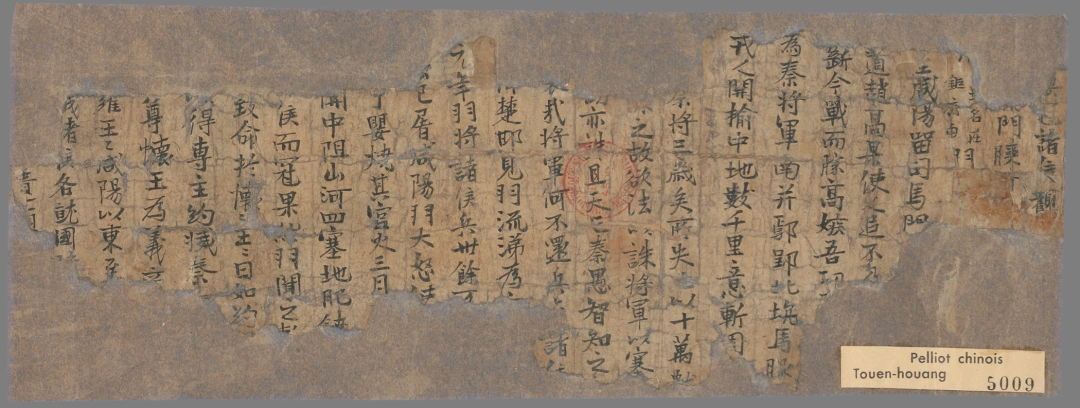 諸侯觀
門膝
咸陽留司馬門
道趙高果使人追不
斷今戰而勝高嫉吾功
為秦將軍南并鄢郢北坑馬服
戎人開榆中地數千里竟斬周
秦將三歲矣所失以十萬
之故欲法以誅將軍以塞
亦誅且天亡秦愚智知之
哉將軍何不還兵諸
楚耶見羽流涕為
元年羽將諸侯兵卅餘万
已屠咸陽羽大怒使
子嬰燒其宮火三月
關中阻山河四塞地肥饒
侯而冠果然羽聞之
致命於懷王〻曰如約
得專主約滅秦
尊懷王為義
王〻咸陽以東至
者侯各就國
Pelliot chinois
Touen-houang
5009